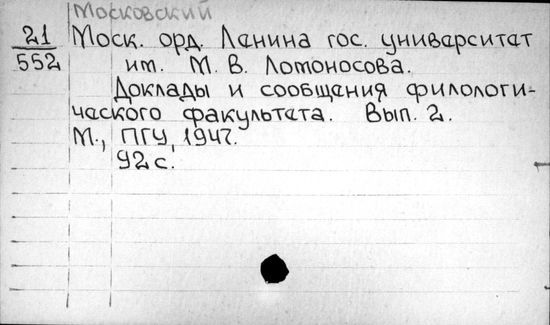 Московский
21
552
Моск. орд. Ленина гос. университет
им. М. В. Ломоносова.
Доклады и сообщения филологи-
ческого факультета. Вып. 2.
М., ПГУ, 1947.
92 с.